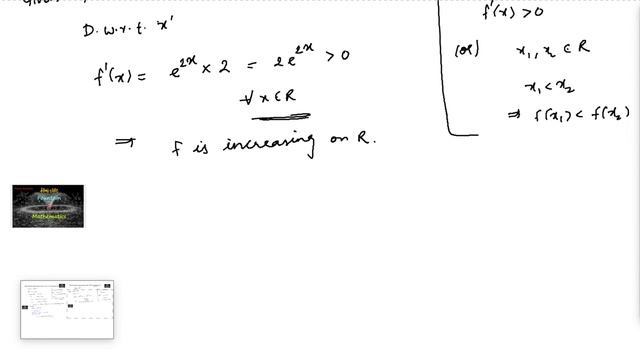 D. w.r.t. 'x'
f'(x) = e^{2x} × 2 = 2e^{2x} > 0
∀ x ∈ R
⇒ f is increasing on R.
f'(x) > 0
(or) x₁, x₂ ∈ R
x₁ < x₂
⇒ f(x₁) < f(x₂)
Fountain
Mathematics